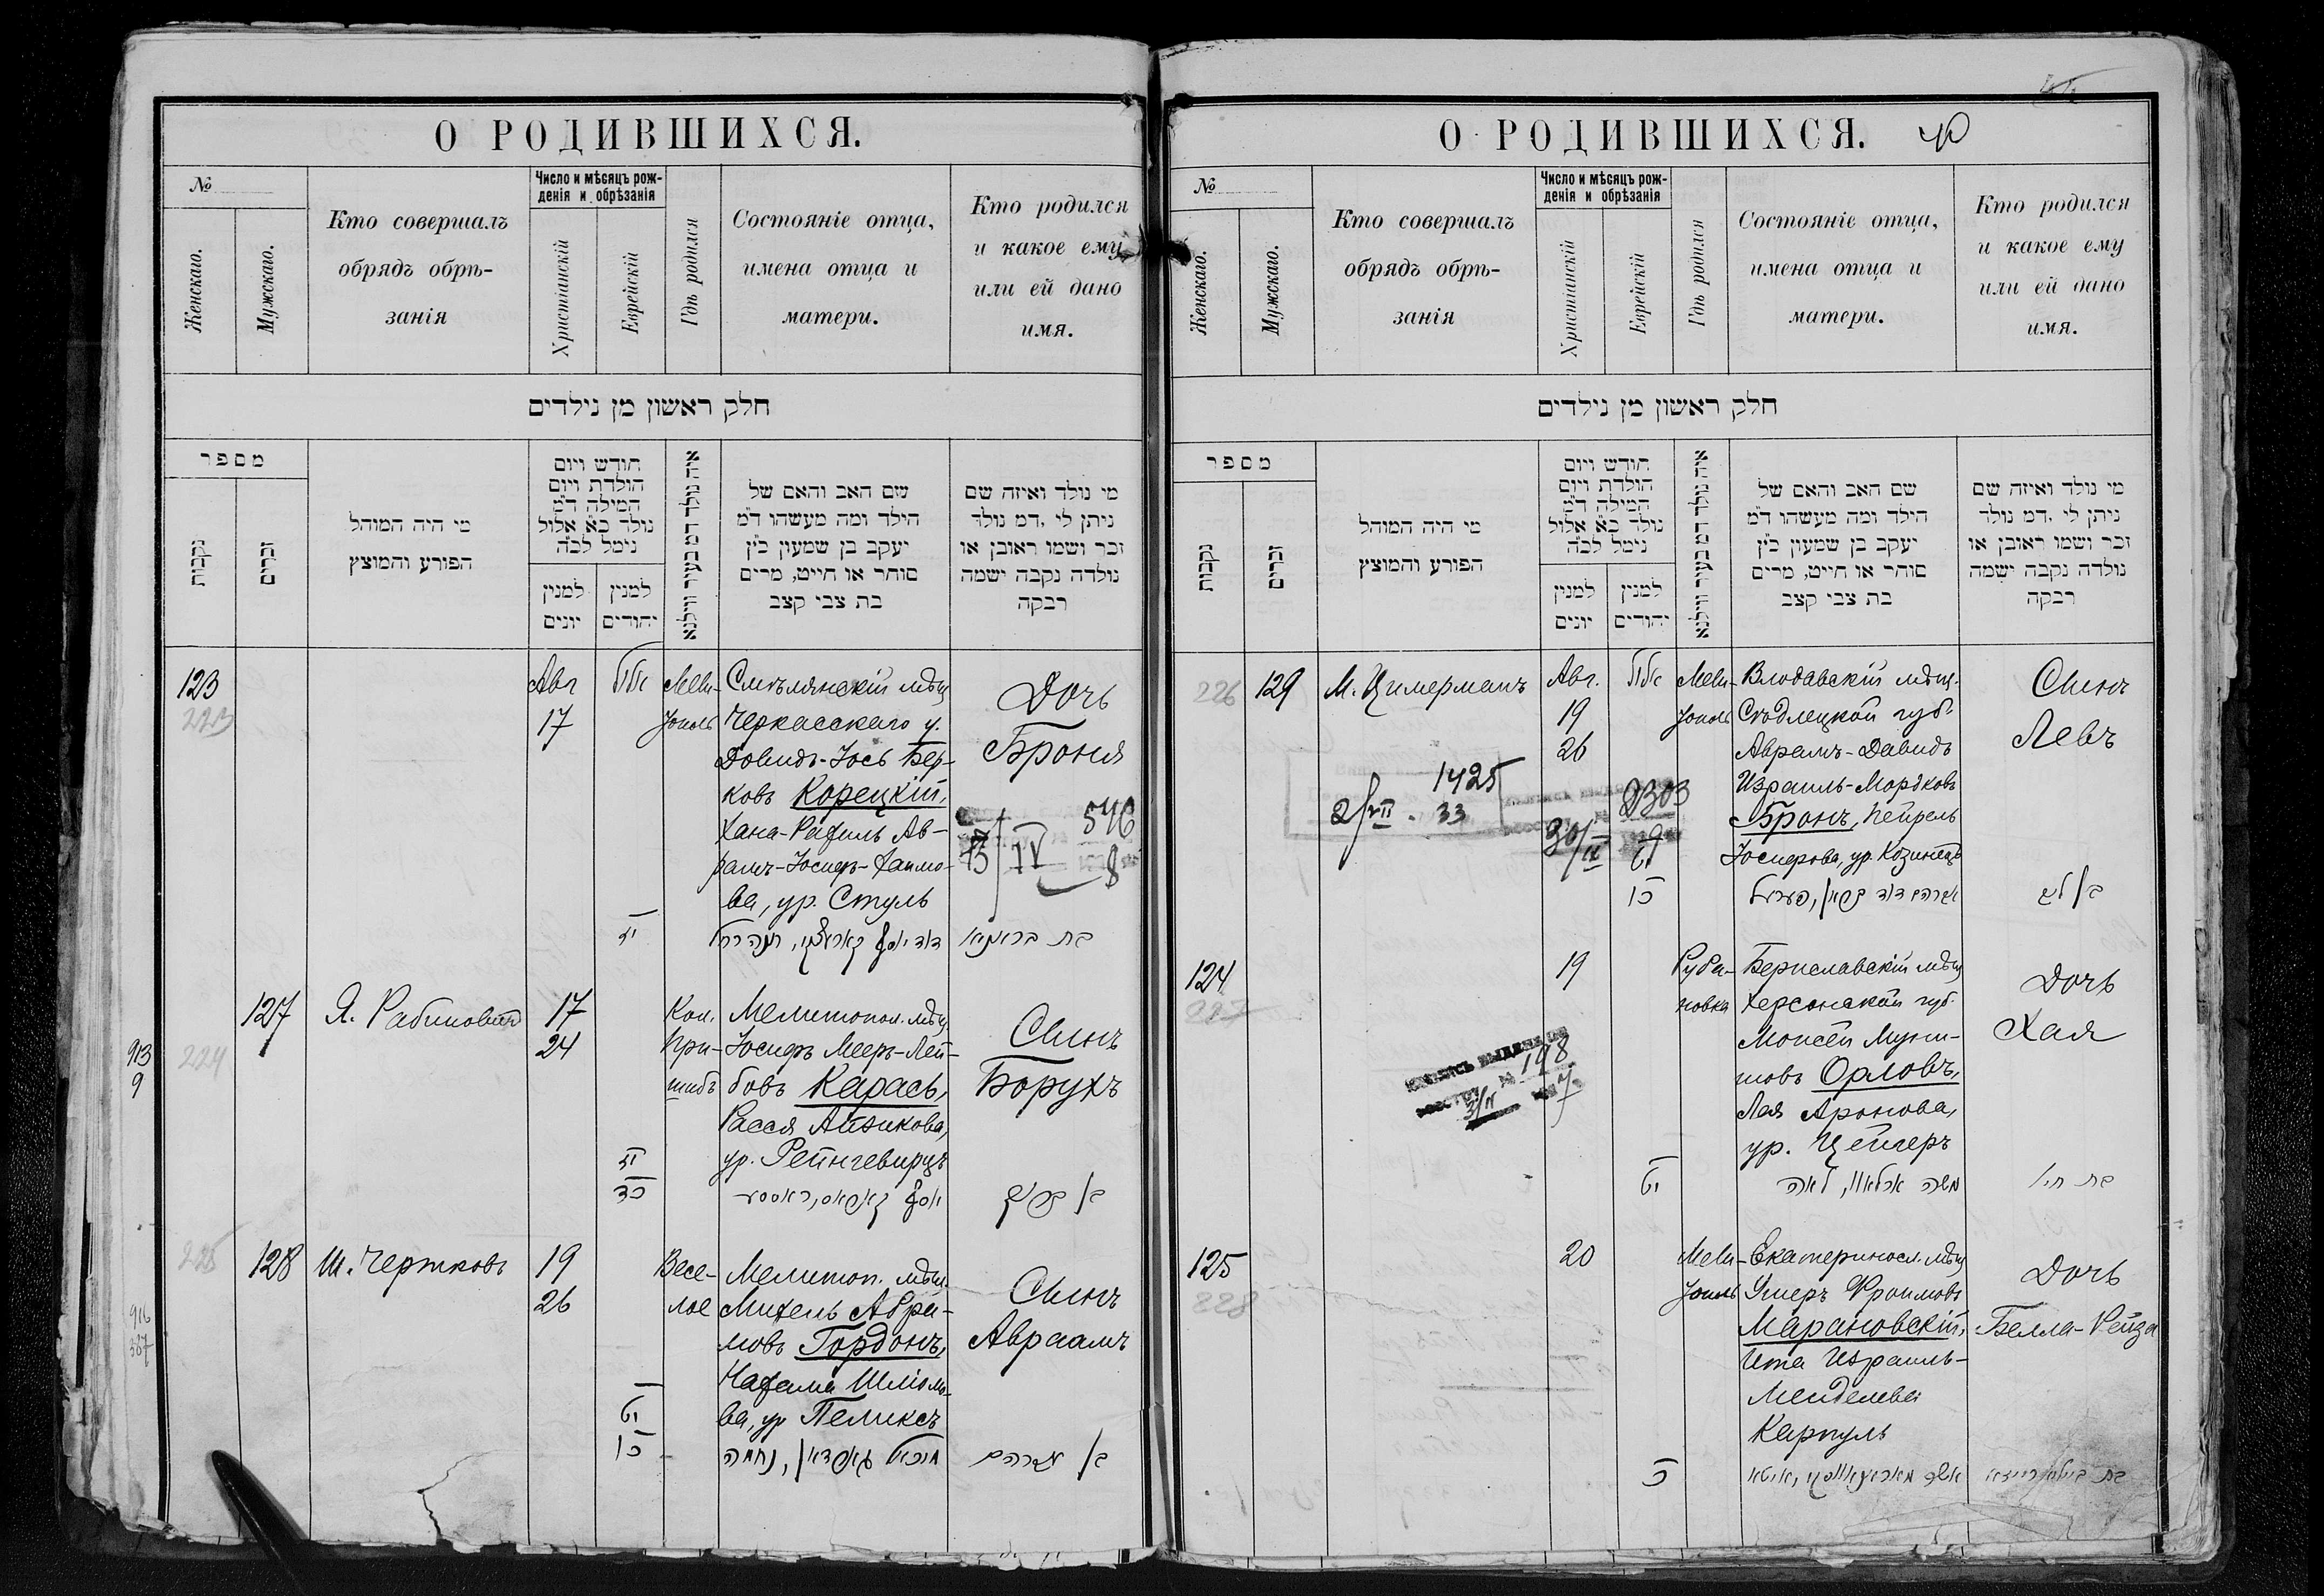 О РОДИВШИХСЯ.
№
Женскаго.
Мужскаго.
Кто совершалъ
обрядъ обрѣ-
занія
Число и мѣсяцъ рож-
денія и обрѣзанія
Христіанскій
Еврейскій
Гдѣ родился
Состояніе отца,
имена отца и
матери.
Кто родился
и какое ему
или ей дано
имя.
חלק ראשון מן נילדים
מספר
נקבות
זכרים
מי היה המוהל
הפורע והמוצץ
חודש ויום
הולדת ויום
המילה ד"מ
נולד כ"א אלול
נימל לכ"ה
למנין
יונים
למנין
יהודים
שם האב והאם של
הילד ומה מעשהו ד"מ
יעקב בן שמעון כ"ץ
סוחר או חייט, מרים
בת צבי קצב
מי נולד ואיזה שם
ניתן לי, דמ נולד
זכר ושמו ראובן או
נולדה נקבה ישמה
רבקה
123
223
Авг
17
Мели-
тополь
Смѣлянскій мѣщ
Черкасскаго у.
Довидъ-Іось Бер-
ковъ Корецкій,
Хана-Рахиль Ав-
рамъ-Іосифъ-Хаимо-
ва, ур. Стуль
Дочь
Броня
546
IV
8
יז
127
224
Я. Рабиновичъ
17
24
Кол.
При-
шибъ
Мелитопол. мѣщ
Іосифъ Мееръ-Лей-
бовъ Карась,
Рассея Айзикова,
ур. Рейнгевирцъ
Сынъ
Борухъ
913
9
יז
כד
128
225
Ш. Чертковъ
19
26
Весе-
лое
Мелитоп. мѣщ.
Михель Абра-
мовъ Гордонъ,
Нахама Шліомо-
ва, ур Пеликсъ
Сынъ
Авраамъ
916
יט
כו
בן אברהם
О РОДИВШИХСЯ.
№
Женскаго.
Мужскаго.
Кто совершалъ
обрядъ обрѣ-
занія
Число и мѣсяцъ рож-
денія и обрѣзанія
Христіанскій
Еврейскій
Гдѣ родился
Состояніе отца,
имена отца и
матери.
Кто родился
и какое ему
или ей дано
имя.
חלק ראשון מן נילדים
מספר
נקבות
זכרים
מי היה המוהל
הפורע והמוצץ
חודש ויום
הולדת ויום
המילה ד"מ
נולד כ"א אלול
נימל לכ"ה
למנין
יונים
למנין
יהודים
שם האב והאם של
הילד ומה מעשהו ד"מ
יעקב בן שמעון כ"ץ
סוחר או חייט, מרים
בת צבי קצב
מי נולד ואיזה שם
ניתן לי, דמ נולד
זכר ושמו ראובן או
נולדה נקבה ישמה
רבקה
226
129
М. Цимерманъ
Авг.
19
26
Мели-
тополь
Влодавскій мѣщ.
Сѣдлецкой губ.
Аврамъ-Давидъ
Израиль-Мордковъ
Бронъ, Пейрель
Іосифова, ур. Козинецъ
Сынъ
Левъ
1425
33
2303
יט
כו
124
227
19
Руба-
новка
Бериславскій мѣщ
Херсонской губ.
Моисей Мунш-
мовъ Орловъ,
Лея Аронова,
ур. Цейгеръ
Дочь
Хая
198
יט
משה ארלאוו, לאה
125
228
20
Мели-
тополь
Екатериносл. мѣщ
Ушеръ Фроимовъ
Марановскій,
Ита Израиль-
Менделева
Карпуль
Дочь
Белла-Рейза
כ